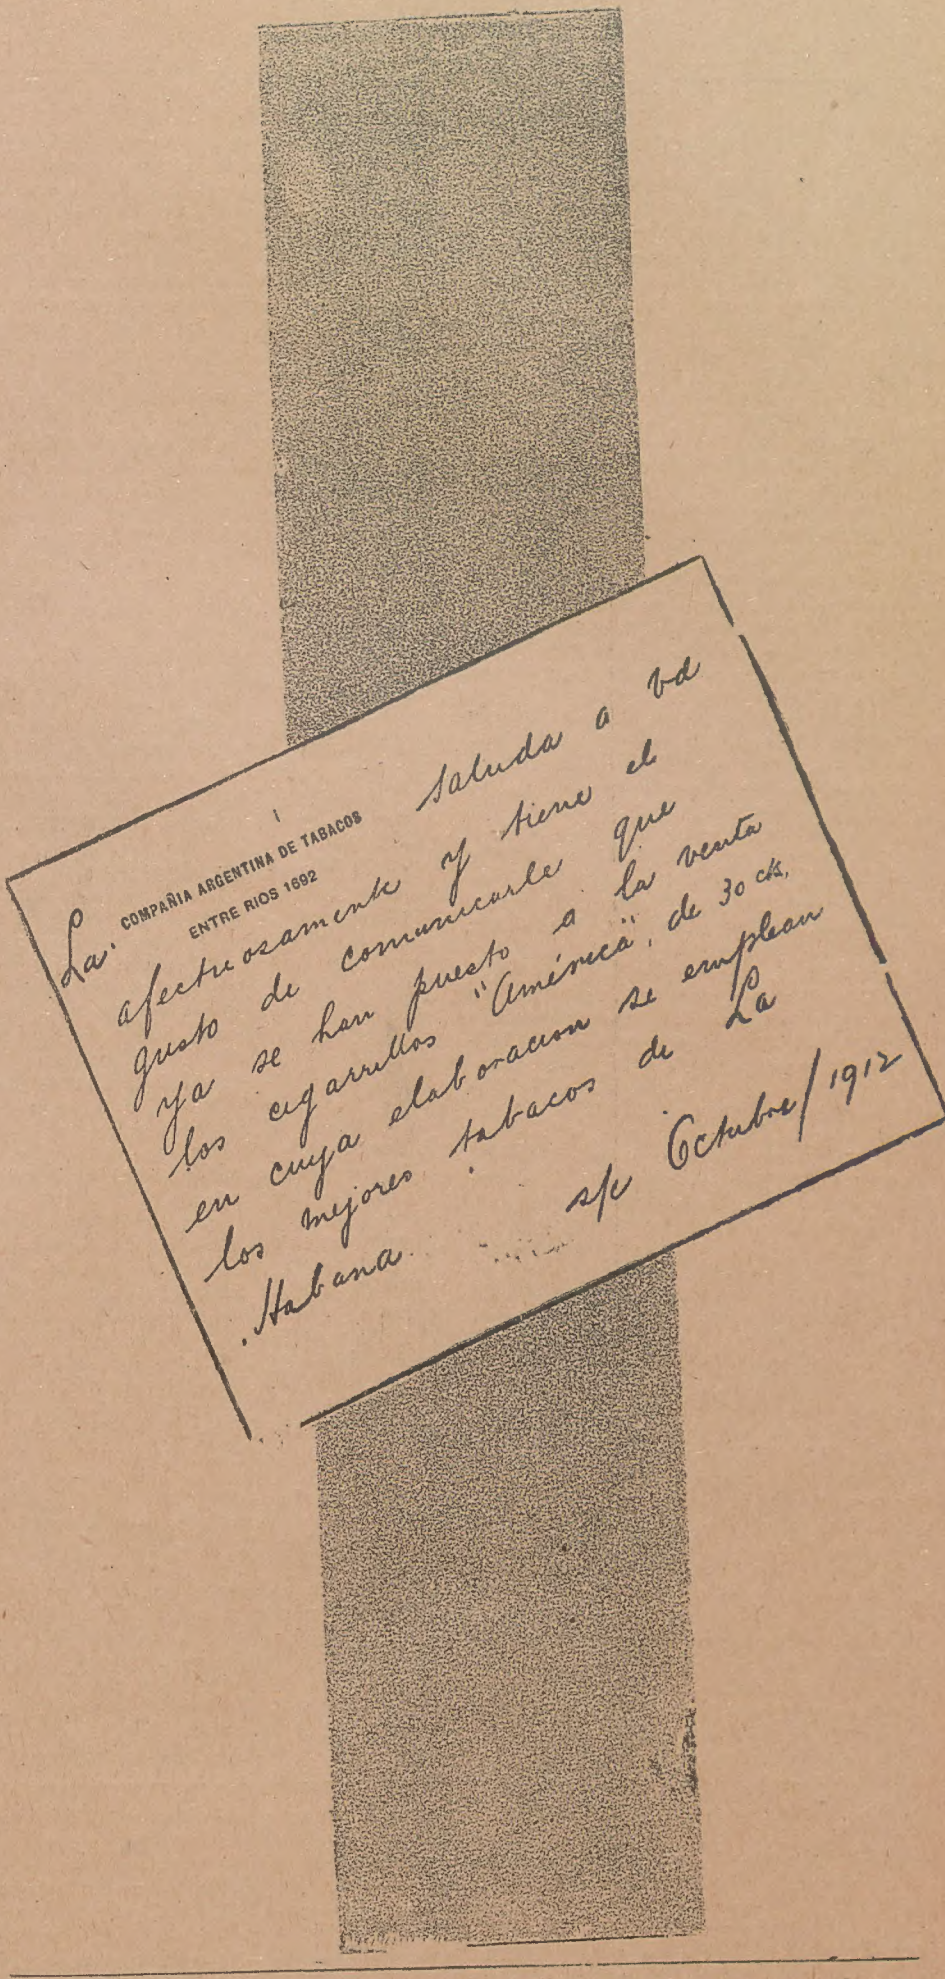 La COMPAÑIA ARGENTINA DE TABACOS saluda a vd
ENTRE RIOS 1692
afectuosamente y tiene el
gusto de comunicarle que
ya se han puesto a la venta
los cigarrillos "América", de 30 cts.
en cuya elaboracion se emplean
los mejores tabacos de La
Habana.
s/c Octubre/1912